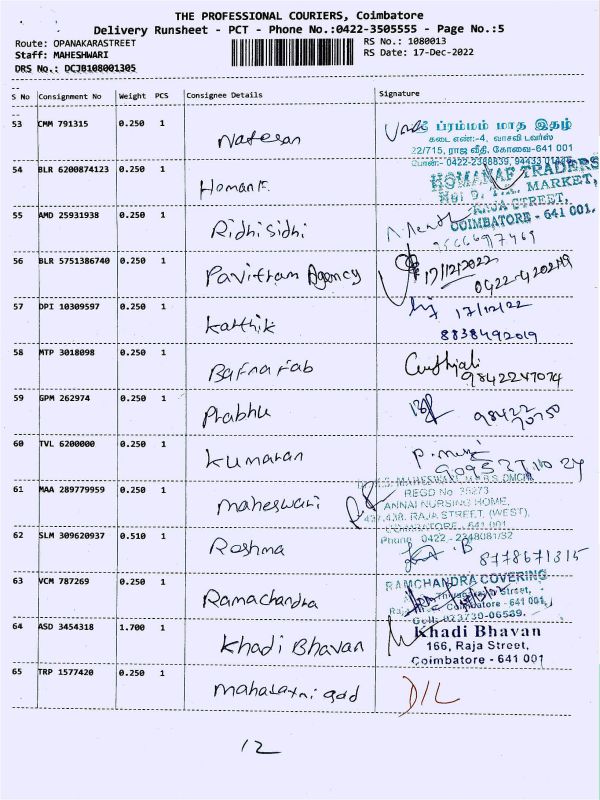 THE PROFESSIONAL COURIERS, Coimbatore
Delivery Runsheet - PCT - Phone No.:0422-3505555 - Page No.:5
Route: OPANAKARASTREET
RS No.: 1080013
Staff: MAHESHWARI
RS Date: 17-Dec-2022
DRS No.: DCJB108001305
S No Consignment No Weight PCS Consignee Details Signature
53 CMM 791315 0.250 1 Natesan
ப்ரம்மம் மாத இதழ்
கடை எண்:-4, வாசவி டவர்ஸ்
22/715, ராஜ வீதி, கோவை-641 001
போன்:- 0422-2388839,
54 BLR 6200874123 0.250 1 Homan F.
HOMANAF TRADERS
MARKET,
RAJA STREET,
COIMBATORE - 641 001.
55 AMD 25931938 0.250 1 Ridhi Sidhi
56 BLR 5751386740 0.250 1 Pavitram Agency 17/12/2022
57 DPI 10309597 0.250 1 Karthik 17/12/22
8838492019
58 MTP 3018098 0.250 1 Bafna Fab
9842247074
59 GPM 262974 0.250 1 Prabhu 98422
70750
60 TVL 6200000 0.250 1 Kumaran
61 MAA 289779959 0.250 1 Maheswari
MAHESWARI M.B.B.S. DMCH
REGD No. 35273
ANNAI NURSING HOME,
437,438, RAJA STREET, (WEST),
COIMBATORE - 641 001
Phone 0422 - 2348081/82
62 SLM 309620937 0.510 1 Reshma 8778671315
63 VCM 787269 0.250 1 Ramachandra
RAMCHANDRA COVERING
Street,
Coimbatore - 641 001.
64 ASD 3454318 1.700 1 Khadi Bhavan
Khadi Bhavan
166, Raja Street,
Coimbatore - 641 001
65 TRP 1577420 0.250 1 Mahalaxmi gold D/L
12